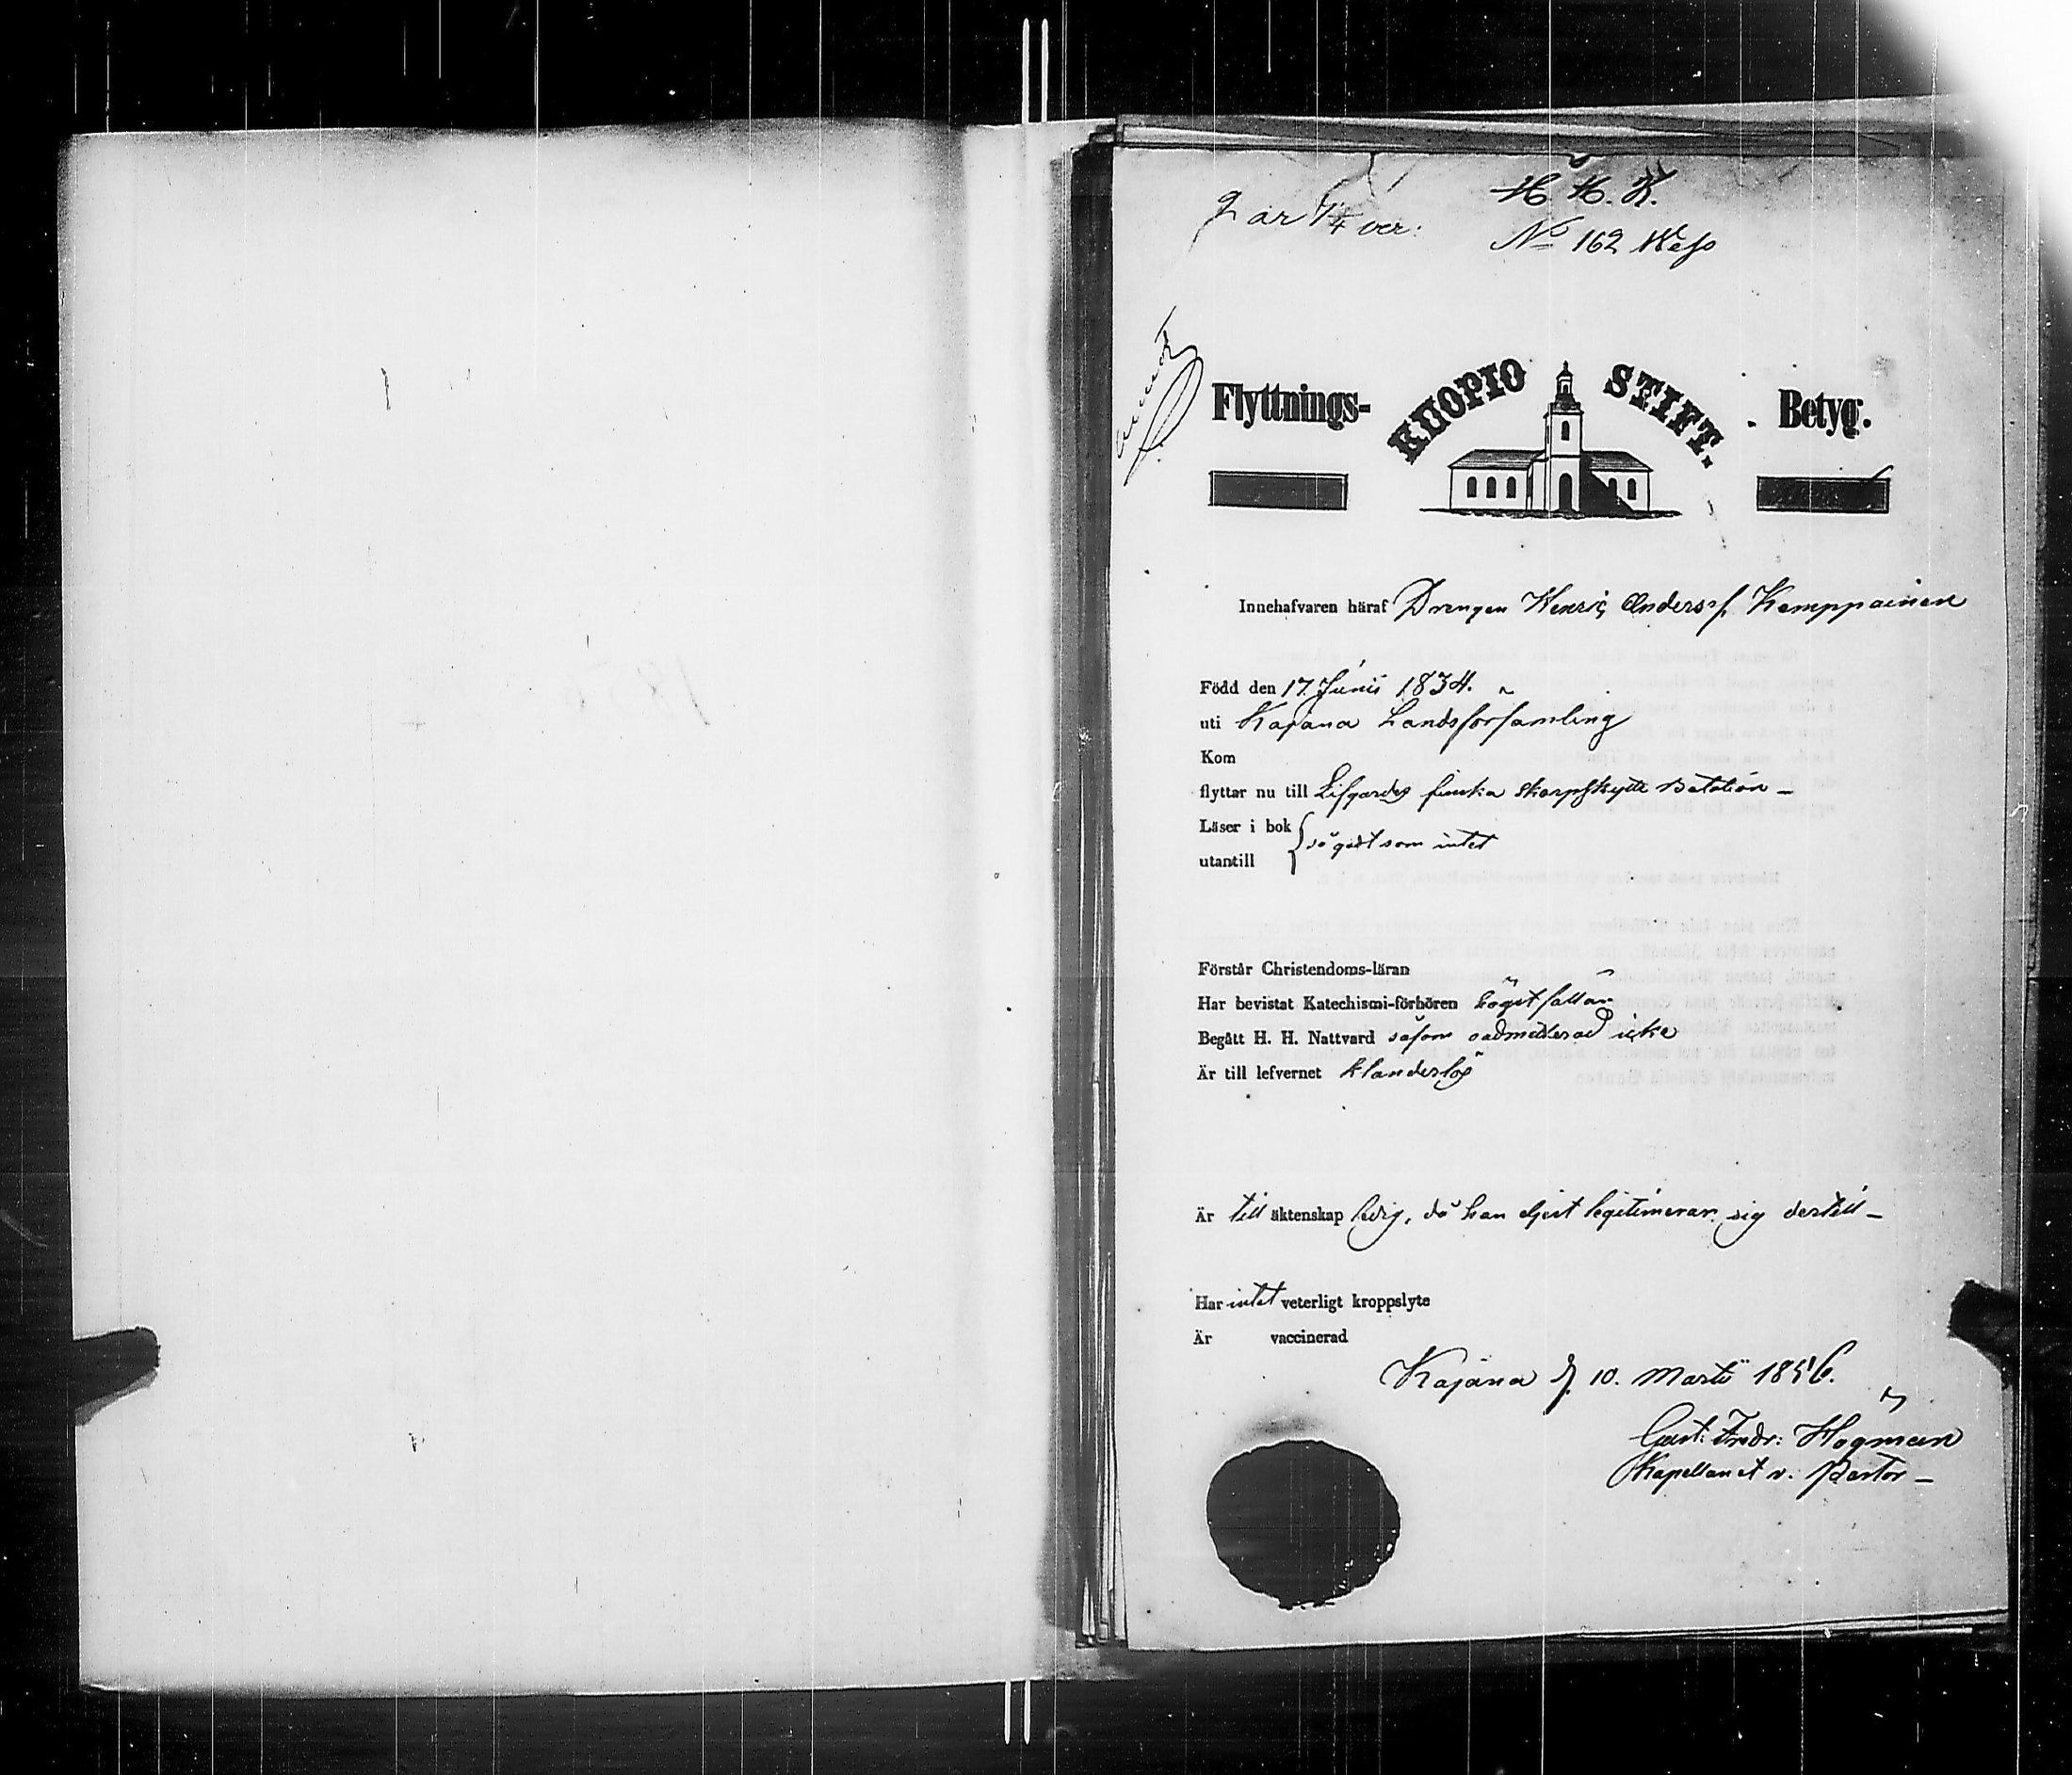 H. H. K.
2 ar 7/4 ver:
No 162 Kejs
Flyttnings- KUOPIO STIFT. Betyg.
Innehafvaren häraf Drengen Henric Anderss. Kemppainen
Född den 17. Junii 1834.
uti Kajana Landsforsamling
Kom
flyttar nu till Lifgardes finska skarpskytte Batalion –
Läser i bok
så godt som intet
utantill
Förstår Christendoms-läran
Har bevistat Katechismi-förhören högst sällan
Begått H. H. Nattvard såsom oadmitterad icke
Är till lefvernet klanderlös
Är till äktenskap ledig, då han eljest legitimerar sig dertill –
Har intet veterligt kroppslyte
Är vaccinerad
Kajana d. 10. Martii 1856.
Gust: Fredr: Högman
Kapellan et v. Pastor –